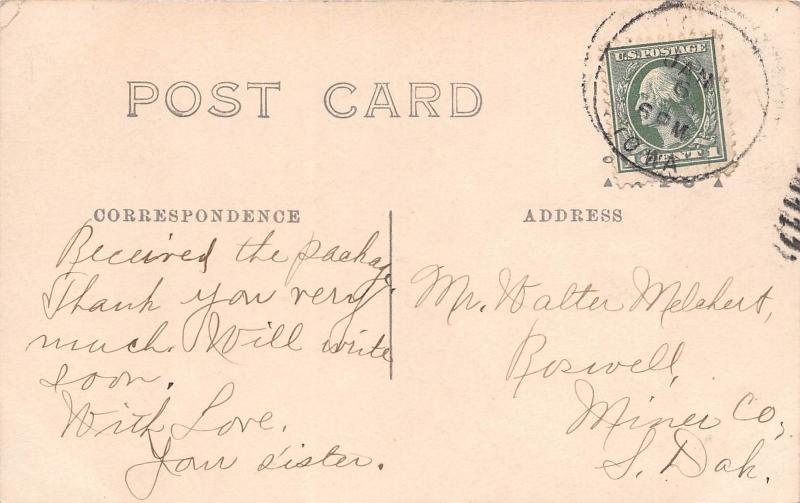 POST CARD
U.S. POSTAGE
1 CENT 1
JAN
6
6 PM
IOWA
CORRESPONDENCE
Received the package.
Thank you very
much. Will write
soon.
With Love.
Your sister.
ADDRESS
Mr. Walter Melchert,
Roswell,
Miner Co.,
S. Dak.